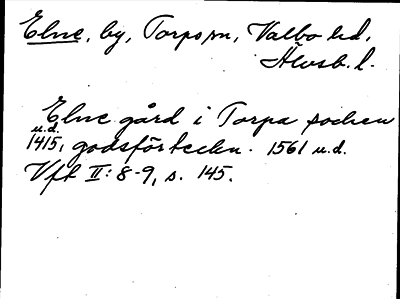 Elne, by, Torps sn, Valbo hd,
Älvsb. l.
Elne gård i Torpa socken
u.d.
1415, godsförteckn. 1561 u.d.
Vft II: 8-9, s. 145.